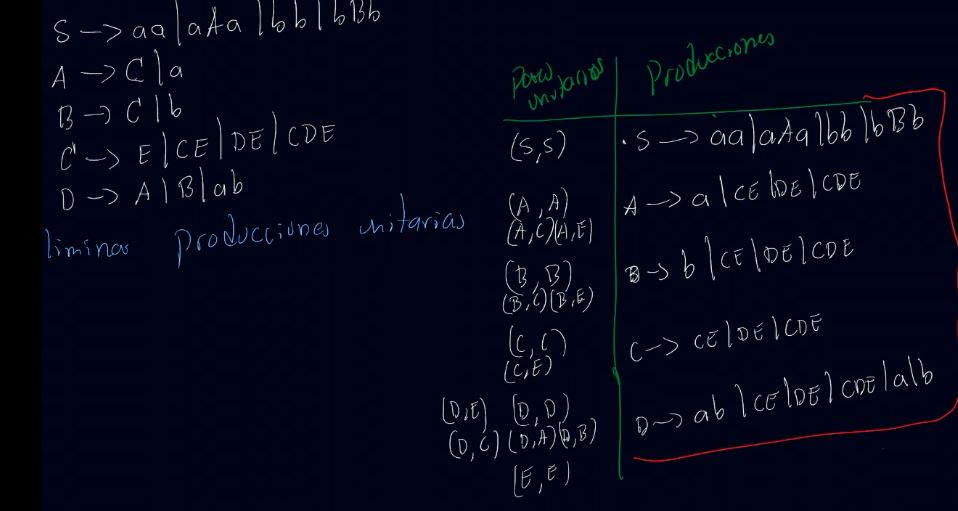 S → aa | aAa | bb | bBb
A → C | a
B → C | b
C → E | CE | DE | CDE
D → A | B | ab
liminas producciones unitarias
unitarios
Producciones
(S,S)
S → aa | aAa | bb | bBb
(A,A)
(A,C)(A,E)
A → a | CE | DE | CDE
(B,B)
(B,C)(B,E)
B → b | CE | DE | CDE
(C,C)
(C,E)
C → CE | DE | CDE
(D,E) (D,D)
(D,C) (D,A)(D,B)
D → ab | CE | DE | CDE | a | b
(E,E)